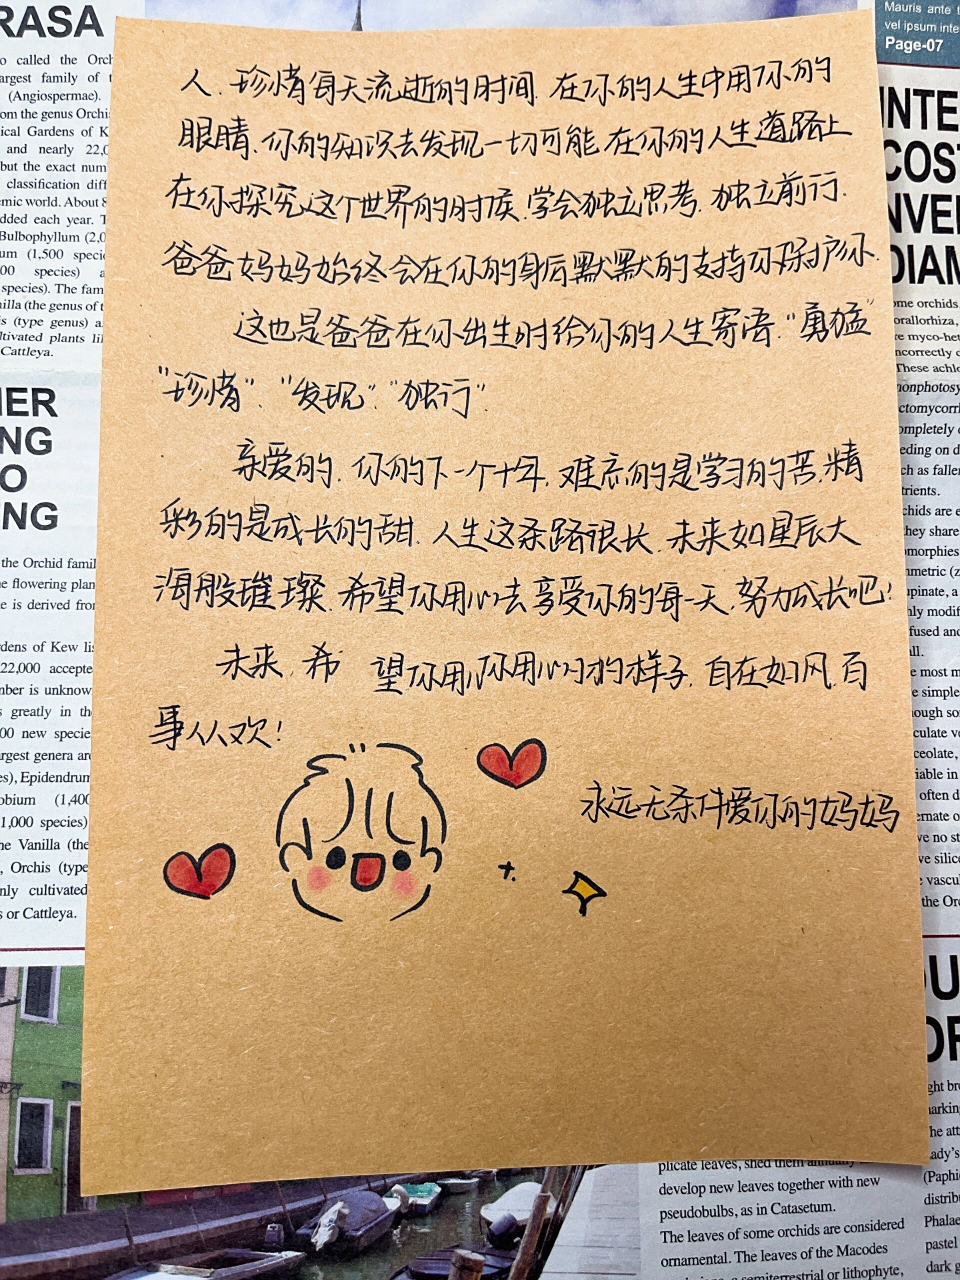 人.珍惜每天流逝的时间.在你的人生中用你的
眼睛、你的知识去发现一切可能.在你的人生道路上
在你探究这个世界的时候.学会独立思考.独立前行.
爸爸妈妈始终会在你的身后默默的支持你保护你.
这也是爸爸在你出生时给你的人生寄语."勇猛"
"珍惜"."发现"."独行"
亲爱的.你的下一个十年.难忘的是学习的苦.精
彩的是成长的甜.人生这条路很长.未来如星辰大
海般璀璨.希望你用心去享受你的每一天.努力成长吧!
未来,希 望你用你用心的样子.自在如风.百
事从欢!
永远无条件爱你的妈妈
RASA
o called the Orch
argest family of t
(Angiospermae).
om the genus Orchi
ical Gardens of K
and nearly 22,0
but the exact num
classification diff
emic world. About 8
dded each year. T
Bulbophyllum (2,0
um (1,500 specie
00 species) a
species). The fam
nilla (the genus of t
is (type genus) a
ltivated plants li
Cattleya.
HER
NG
O
NG
the Orchid famil
e flowering plan
e is derived from
dens of Kew lis
22,000 accepte
mber is unknow
s greatly in the
00 new specie
argest genera are
es), Epidendrum
obium (1,400
1,000 species)
he Vanilla (the
, Orchis (type
nly cultivated
s or Cattleya.
Mauris ante t
vel ipsum inte
Page-07
INTE
COST
NVE
DIAM
ome orchids
orallorhiza,
e myco-het
ncorrectly c
These achl
nonphotosy
ctomycorrh
ompletely
eding on d
ch as faller
trients.
chids are e
they share
omorphies
mmetric (z
upinate, a
hly modif
fused and
ll.
e most m
e simple
ough sor
culate ve
ceolate,
iable in
often d
ernate o
ve no st
ve silice
e vascul
the Orc
OU
OF
ght br
arkin
he att
ady's
(Paphi
distrib
Phalae
pastel
dark g
plicate leaves, shed them annually
develop new leaves together with new
pseudobulbs, as in Catasetum.
The leaves of some orchids are considered
ornamental. The leaves of the Macodes
a semiterrestrial or lithophyte,